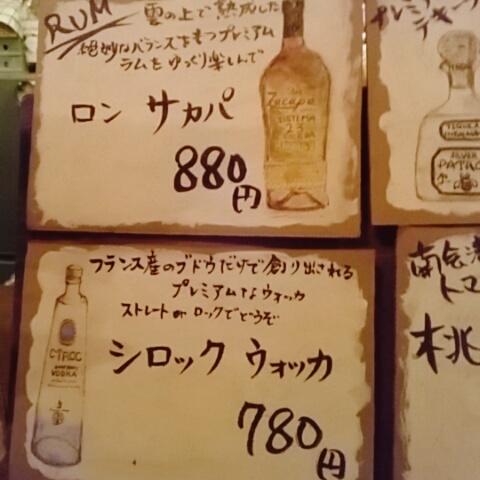 RUM
雲の上で熟成した
絶妙なバランスをもつプレミアム
ラムをゆっくり楽しんで
ロン サカパ
880円
Zacapa
SISTEMA
23
プレミアム
テキーラ
TEQUILA
SILVER
PATRON
フランス産のブドウだけで創り出される
プレミアムなウォッカ
ストレート or ロックでどうぞ
シロック ウォッカ
780円
CIROC
VODKA
桃